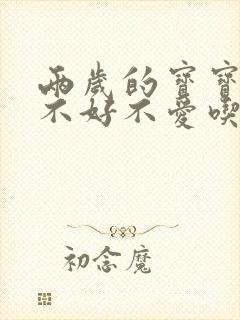 兩歲的寶寶
不好不愛喫
初念魔